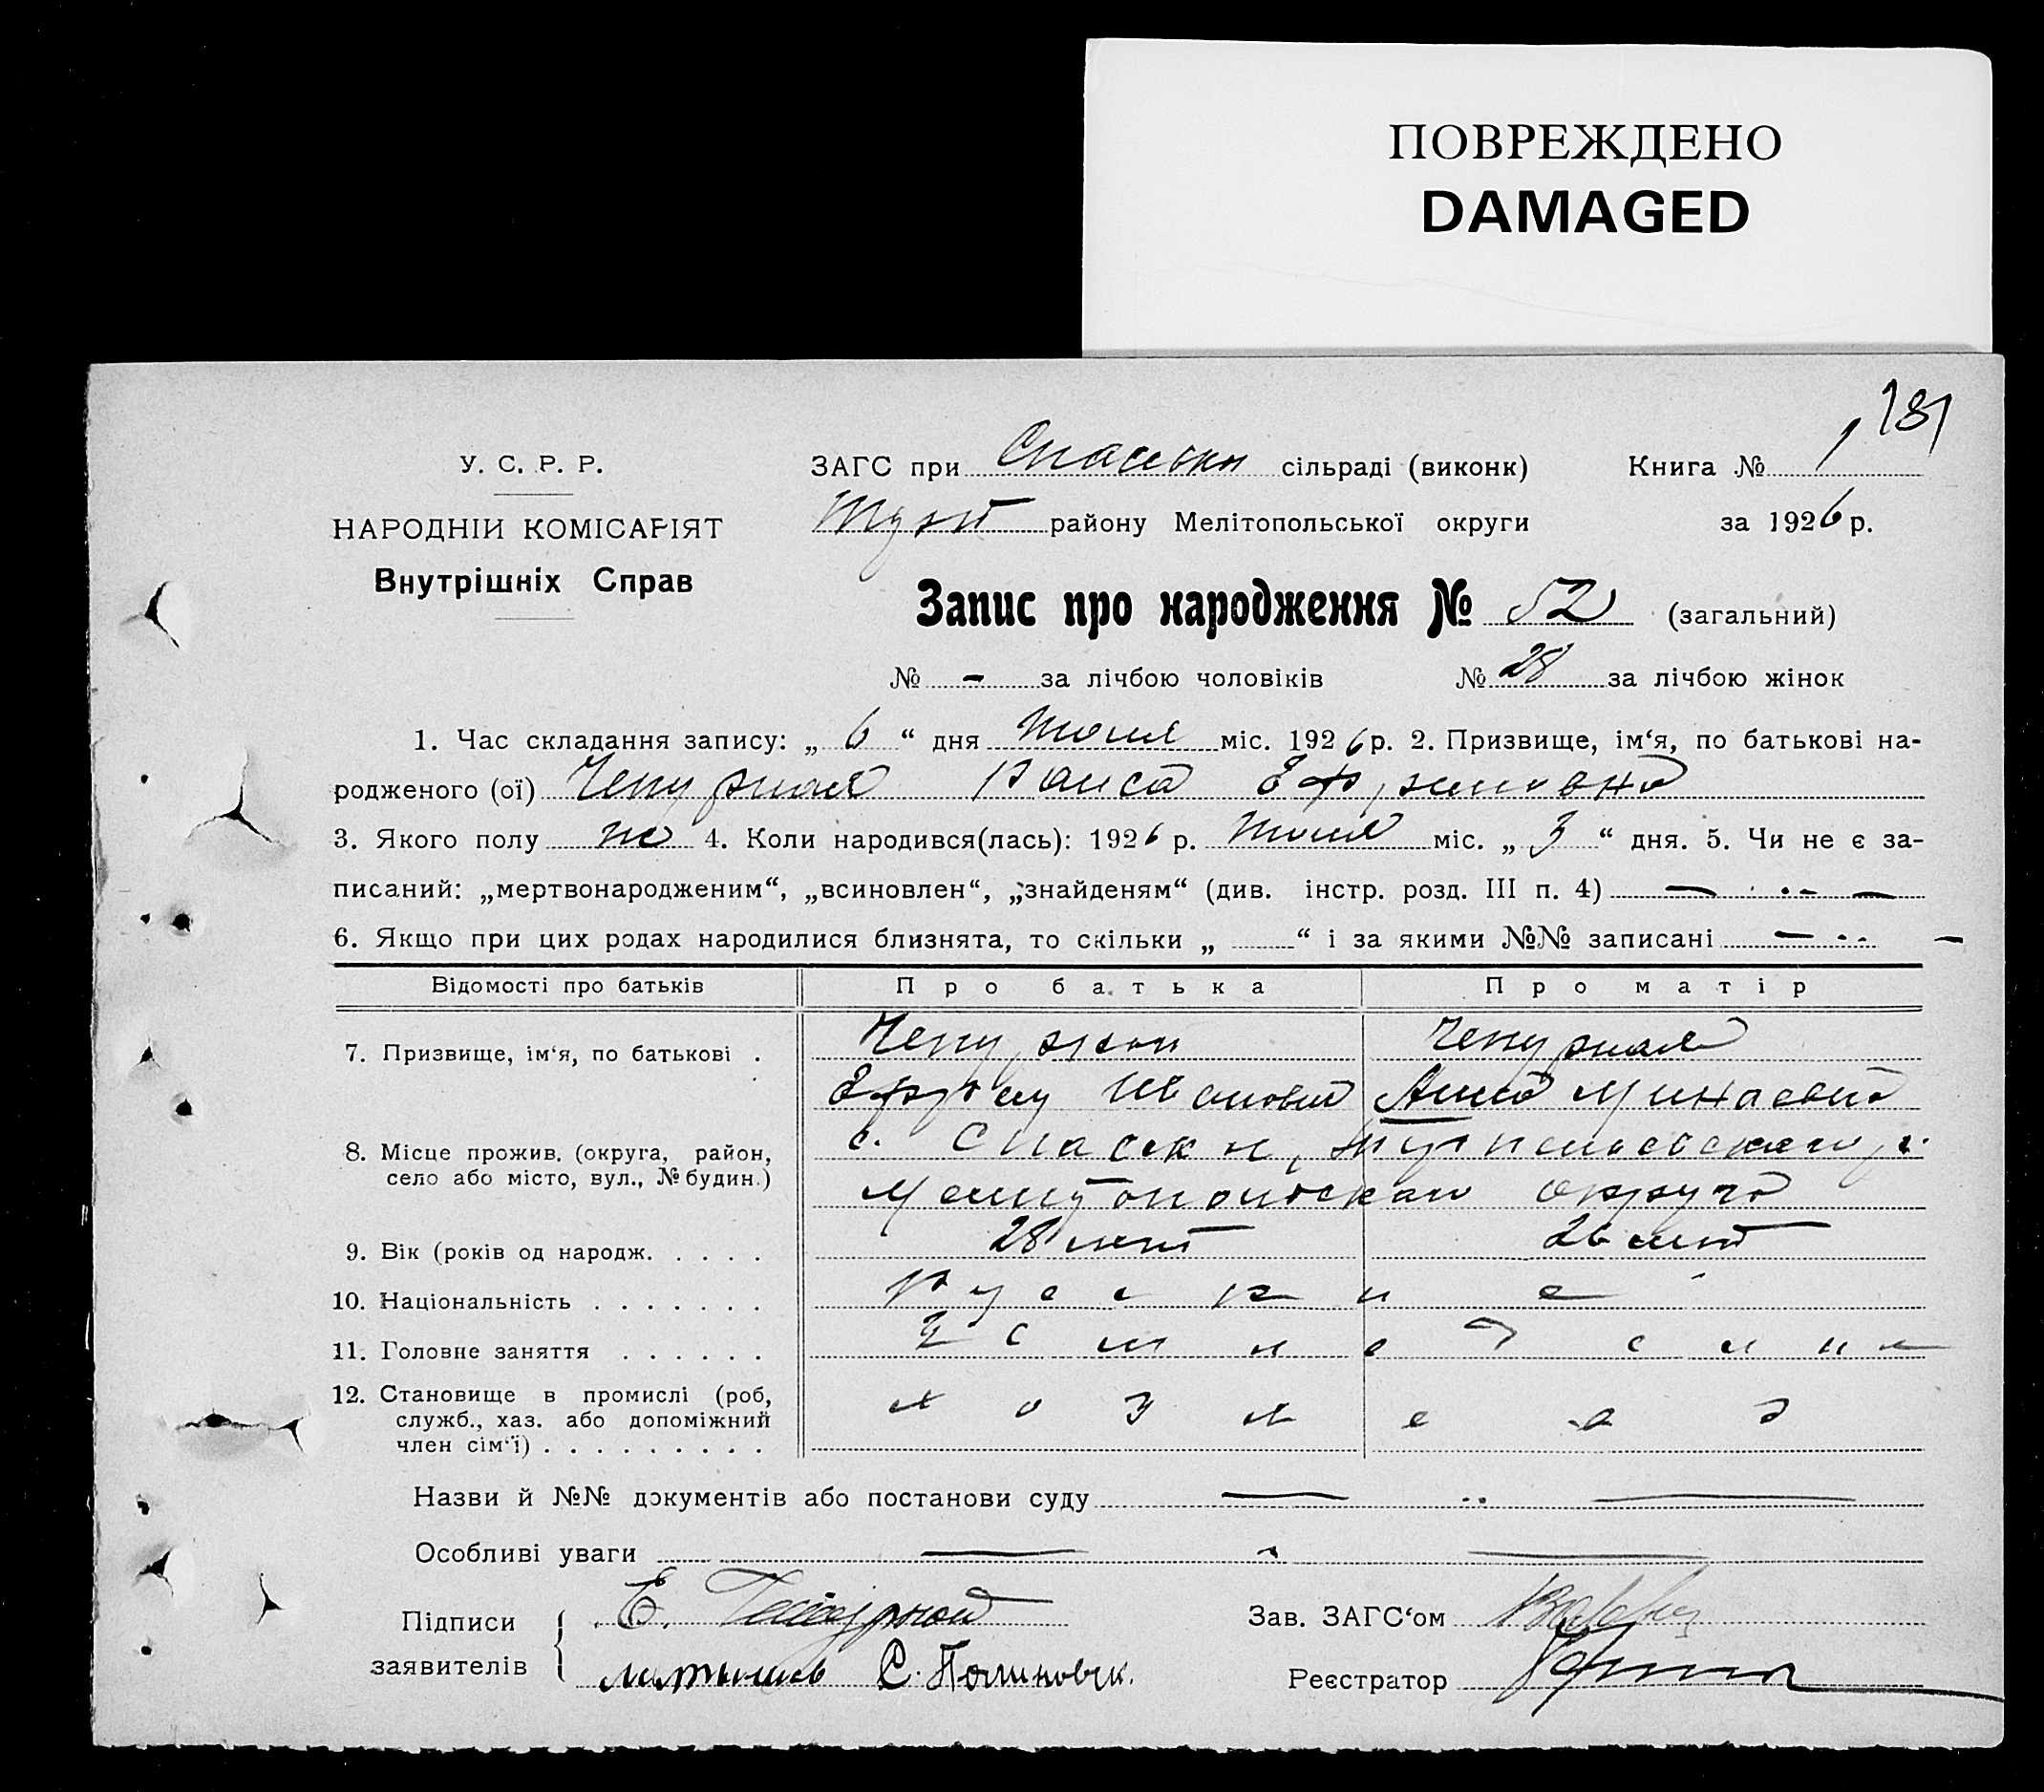 ПОВРЕЖДЕНО
DAMAGED
181
У. С. Р. Р.
ЗАГС при Спаськи сільраді (виконк) Книга № 1
НАРОДНІЙ КОМІСАРІЯТ
району Мелітопольської округи за 1926 р.
Внутрішніх Справ
Запис про народження № 52 (загальний)
№ - за лічбою чоловіків № 28 за лічбою жінок
1. Час складання запису: „ 6 “ дня Июля міс. 1926 р. 2. Призвище, ім‘я, по батькові на-
родженого (ої) Чепурная Раиса
3. Якого полу ж 4. Коли народився(лась): 1926 р. Июля міс. „ 3 “ дня. 5. Чи не є за-
писаний: „мертвонародженим“, „всиновлен“, „знайденям“ (див. інстр. розд. III п. 4) —
6. Якщо при цих родах народилися близнята, то скільки „ “ і за якими №№ записані —
Відомості про батьків Про батька Про матір
7. Призвище, ім‘я, по батькові . Чепурной Чепурная
Иванович Анна Минаевна
8. Місце прожив. (округа, район, село або місто, вул., № будин.) с. Спаски,
Мелитопольской округа
9. Вік (років од народж. . . . . 28 лет 26 лет
10. Національність . . . . . . . Русские
11. Головне заняття . . . . . . Земледелие
12. Становище в промислі (роб,
служб., хаз. або допоміжний
член сім‘ї) . . . . . . . . . хозяева
Назви й №№ документів або постанови суду —
Особливі уваги —
Підписи заявителів Е. Чепурной Зав. ЗАГС‘ом
С. Полиновск. Реєстратор